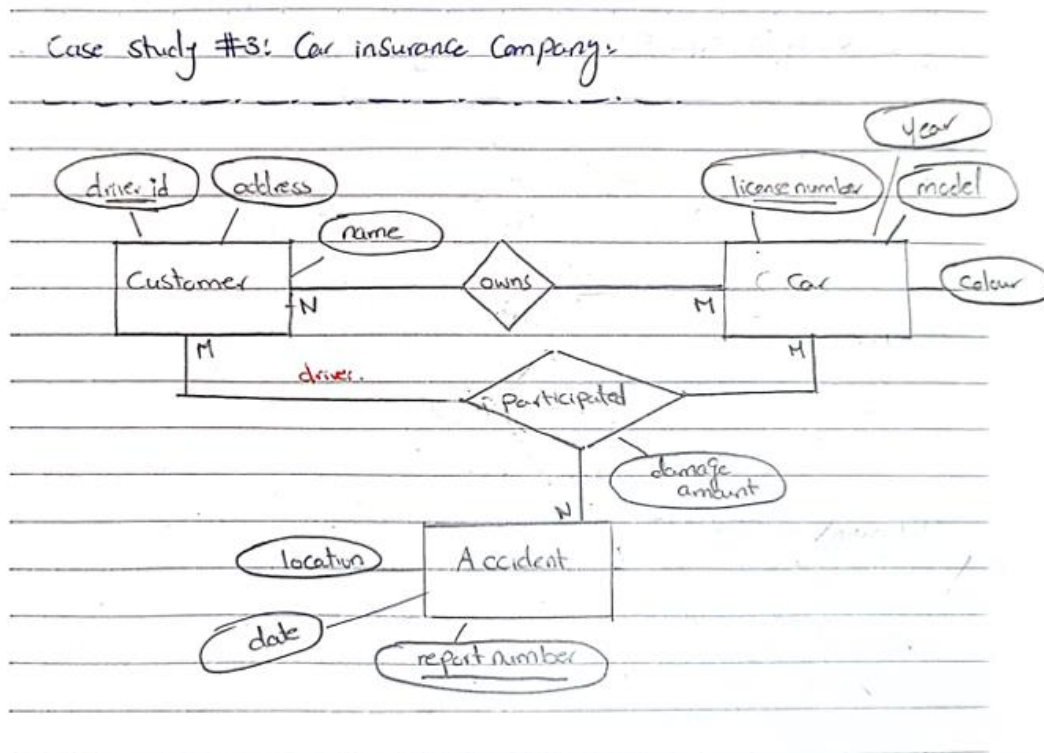 Case study #3: Car insurance Company:
year
driver id address license number model
name
Customer owns Car colour
N M
M M
driver.
participated
damage
amount
N
location Accident
date
report number